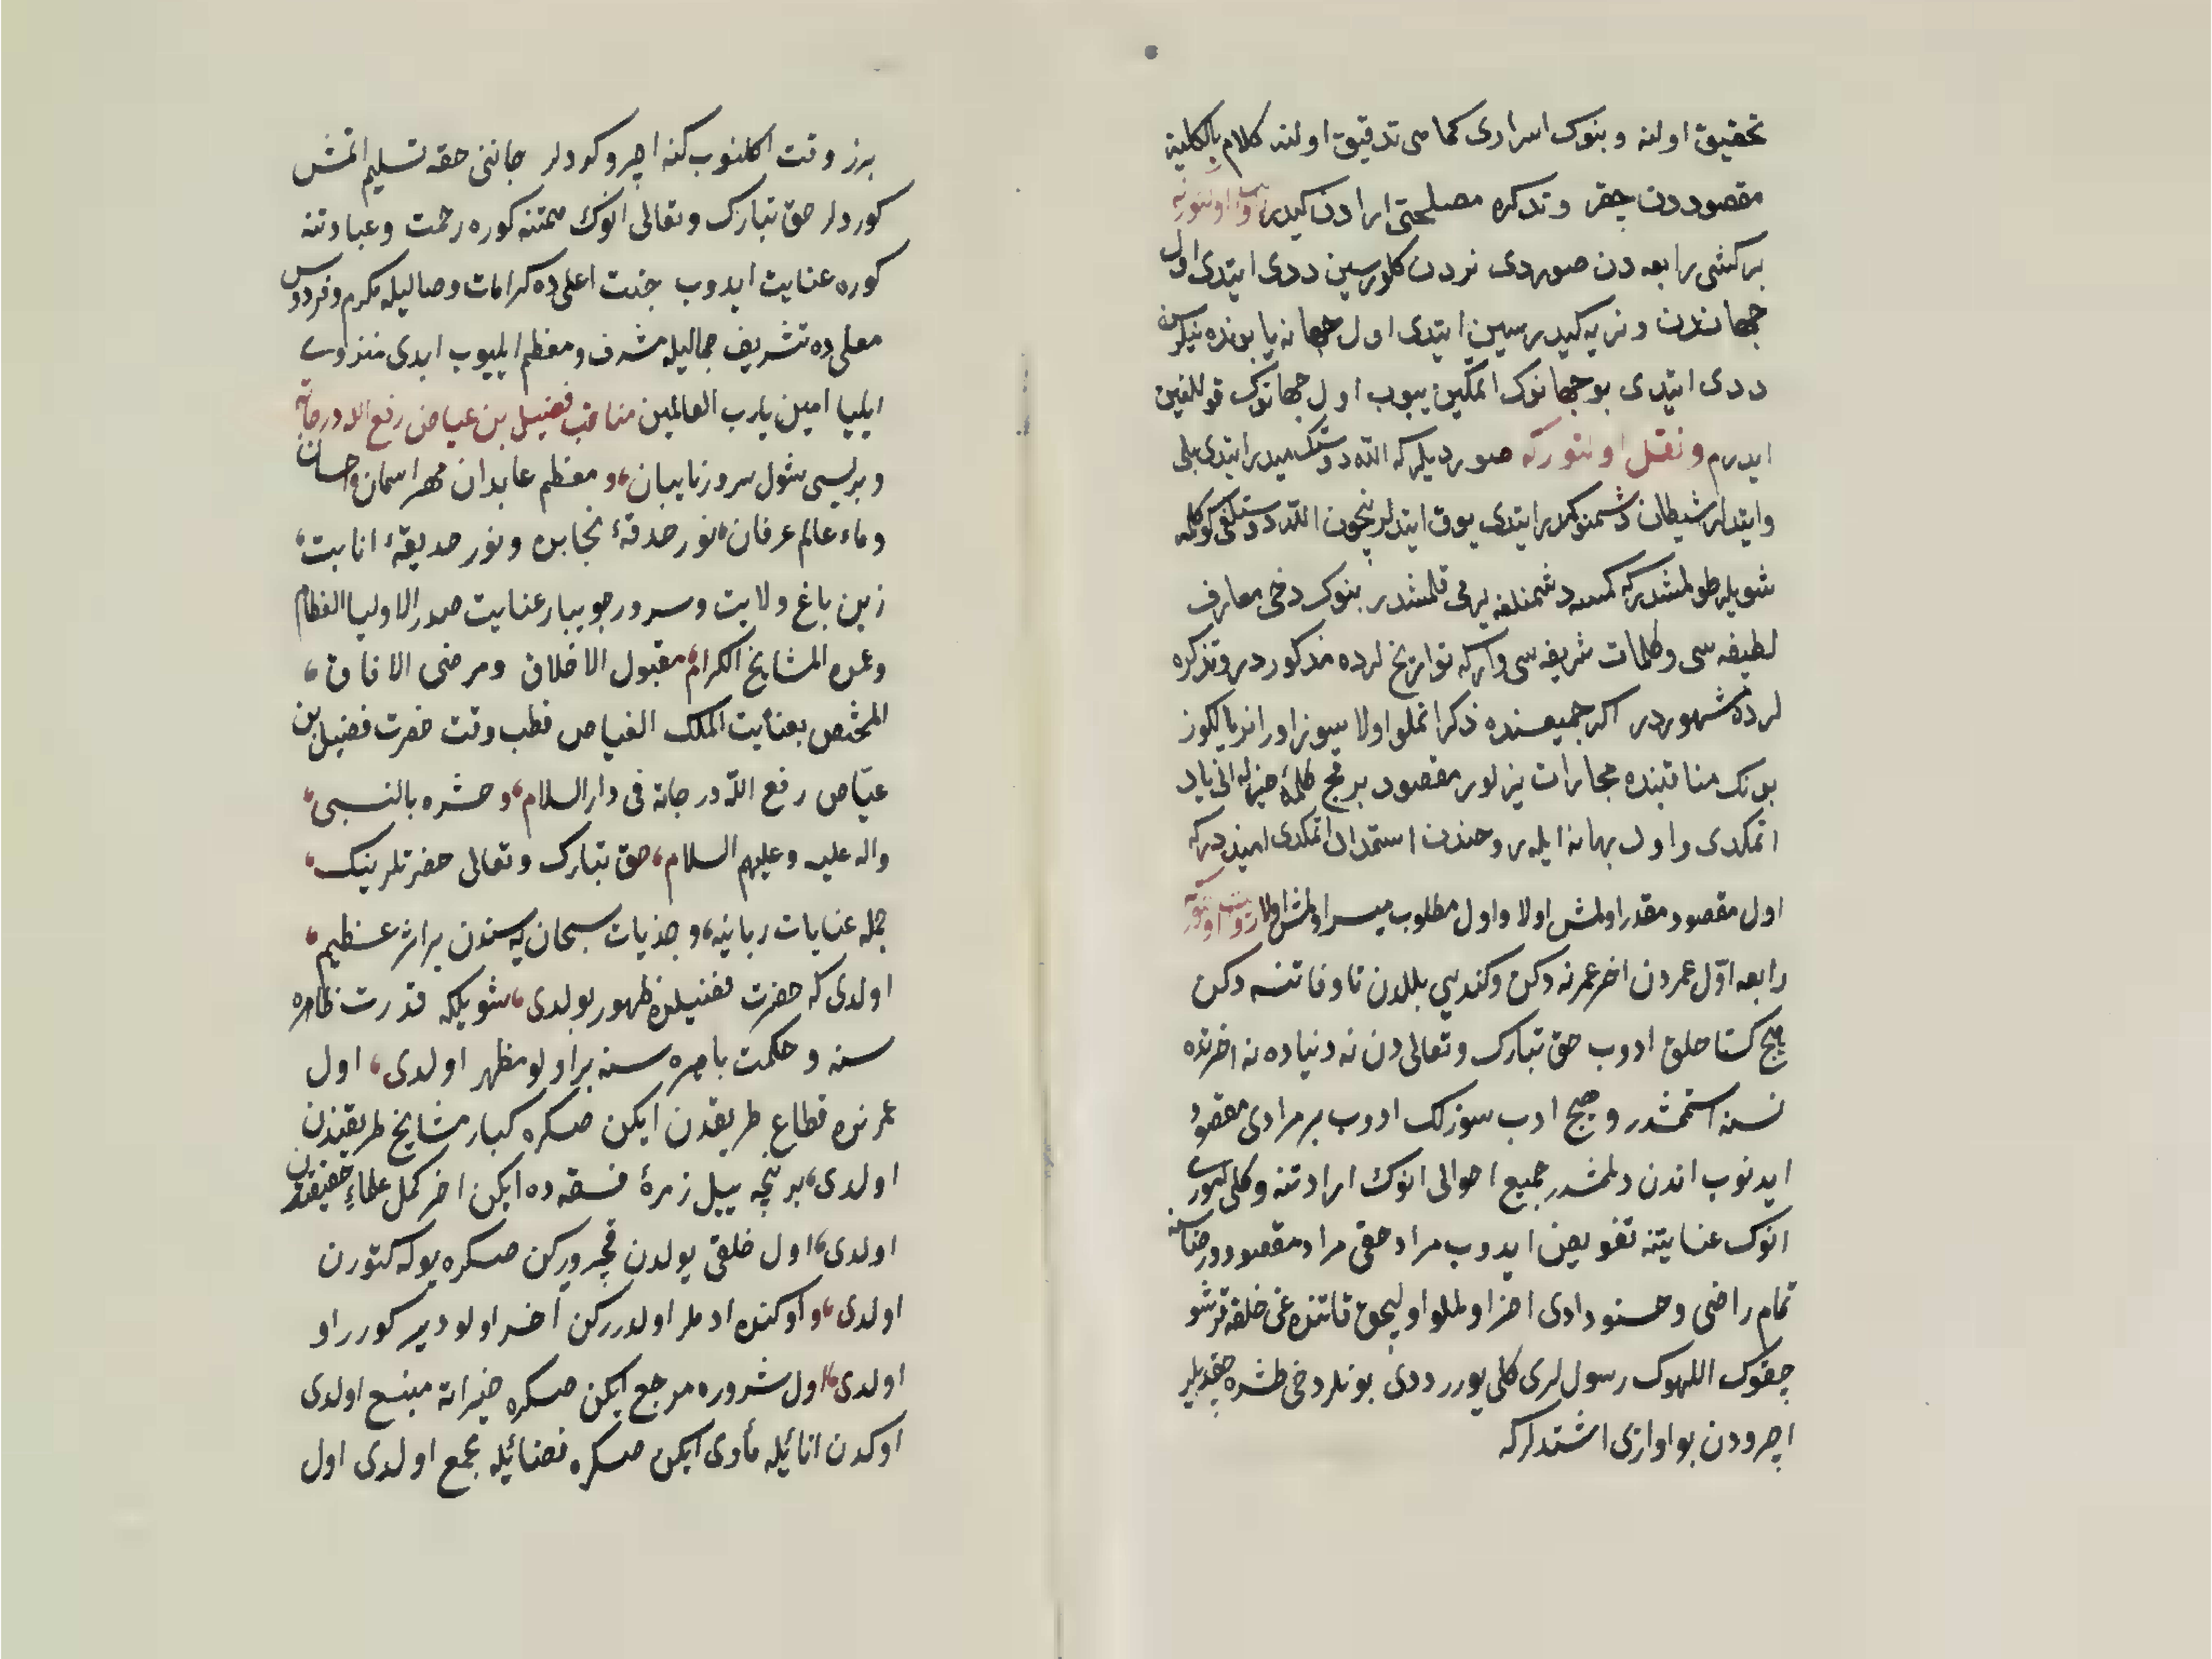 تحقیق اولنه و بنوك اسراری كما هی تدقیق اولنه كلام بالكلیه
مقصوددن چقر و تذكره مصلحتی ارادن كیدر روایت اولنورکه
بر كشی رابعه دن صوردی نردن كلورسین ددی ایتدی اول
جهاندن و نریه كیدرسین ایتدی اول جهانه یا بونده نیلرسن
ددی ایتدی بو جهانوك اتمكین ییوب اول جهانوك قوللغین
ایدرم و نقل اولنورکه صوردیلركه الله دوستك میدر ایتدی بلی
وایتدلر شیطان دشمنوكمیدر ایتدی یوق ایتدلر نیچون الله دوستلغی كوكلمه
شویله طولمشدركه كمسه دشمنلغنه یر می قلمشدر بنوك دخی معارف
لطیفه سی و كلمات شریفه سی واركه تواریخ لرده مذكوردر و تذكره
لرده مشهوردر اكر جمیعنده ذكر اتملو اولا سیوز اوزانر یا لكوز
بونك مناقبنده مجلدات یزلور مقصود بر قچ كلمۀ خیرله انی یاد
اتمكدی و اول بهانه ایله روحندن استمداد اتمكدی امیددركه
اول مقصود مقدر اولمش اولا و اول مطلوب میسر اولمش اولا روایت اولنورکه
رابعه اوّل عمردن اخر عمرنه دكن و كندیی بللدن تا وفاتنه دكن
هیچ كستاحلق ادوب حق تبارك و تعالی دن نه دنیاده نه اخرتده
نسنه استمشدر و هیچ ادب سوزلك ادوب بر مرادی مقصود
ایدنوب اندن دلمشدر جمیع احوالی انوك ارادتنه و كلی اموری
انوك عنایتنه تفویض ایدوب مراد حقی مراد مقصود و رضاسنه
تمام راضی و خشنود ادی اخر اولملو اولیجق قاتنده غی خلقه ترشو
چقوك اللهوك رسول لری كلی یورر ددی بونلر دخی طشره چقدیلر
اچرودن بو اوازی اشتدلركه
برز وقت اكلنوب كنه اچرو كردلر جاننی حقه تسلیم اتمش
كوردلر حق تبارك و تعالی انوك همتنه كوره رحمت و عبادتنه
كوره عنایت ایدوب جنت اعلی ده كرامات وصالیله مكرم و فردوس
معلی ده تشریف جمالیله مشرف و معظم ایلیوب ابدی منزوی
ایلییا امین یارب العالمین مناقب فضیل بن عیاض رفع الله درجاته
و بریسی شول سرور تایبان، و معظم عابدان مهر اسمان احسان
و ماء عالم عرفان، نور حدقۀ نجابت و نور حدیقۀ انابت،
زین باغ ولایت و سرور جویبار عنایت صدر الاولیا العظام
و عمدة المشایخ الكرام، مقبول الاخلاق و مرضی الافاق،
المختص بعنایت الملك الفیاض قطب وقت حضرت فضیل بن
عیّاض رفع الله درجاته فی دار السلام، و حشره بالنبی،
واله علیه و علیهم السلام، حق تبارك و تعالی حضرتلرینك،
جمله عنایات ربانیه، و جذبات سبحانیه سندن بر اثر عظیم،
اولدی كه حضرت فضیلده ظهور بولدی، شویلكه قدرت ظاهره
سنه و حكمت باهره سنه بر اولو مظهر اولدی، اول
عمرنده قطاع طریقدن ایكن صكره كبار مشایخ طریقتدن
اولدی، بر نچه ییل زمرۀ فسقه ده ایكن اخر كمل علماء حقیقتدن
اولدی، اول خلقی یولدن قچرورکن صكره یوله كتورن
اولدی، و اوكنده ادملر اولدررکن اخر اولودیركورر او
اولدی، اول شروره مرجع ایكن صكره خیراته منبع اولدی
اوكدن اناثیله مأوی ایكن صكره فضائیله مجمع اولدی اول